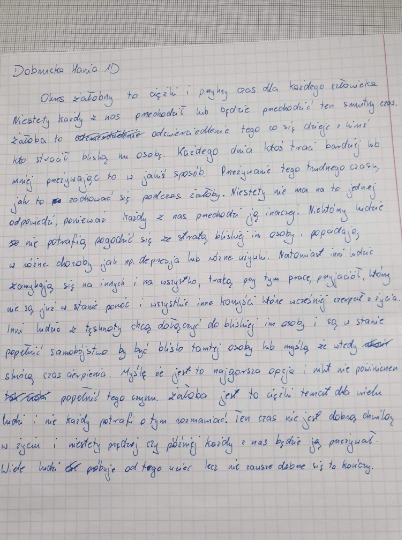 Dobrucka Hania 1D
Okres żałobny to ciężki i przykry czas dla każdego człowieka.
Niestety każdy z nas przechodził lub będzie przechodzić ten smutny czas.
Żałoba to odzwierciedlenie tego co się dzieje z kimś
kto stracił bliską mu osobę. Każdego dnia ktoś traci bardziej lub
mniej przeżywając to w jakiś sposób. Przeżywanie tego trudnego czasu,
jak to zachować się podczas żałoby. Niestety nie ma na to jednej
odpowiedzi, ponieważ każdy z nas przechodzi ją inaczej. Niektórzy ludzie
nie potrafią pogodzić się ze stratą bliskiej im osoby i popadają
w różne choroby jak np. depresja lub różne używki. Natomiast inni ludzie
zamykają się na innych i na wszystko, tracą przy tym pracę, przyjaciół, którzy
nie są już w stanie pomóc i wszystkie inne korzyści które wcześniej czerpali z życia.
Inni ludzie z tęsknoty chcą dołączyć do bliskiej im osoby i są w stanie
popełnić samobójstwo by być blisko tamtej osoby lub myślą że wtedy
skrócą czas cierpienia. Myślę że jest to najgorsza opcja i nikt nie powinien
popełnić tego czynu. Żałoba jest to ciężki temat dla wielu
ludzi i nie każdy potrafi o tym rozmawiać. Ten czas nie jest dobrą chwilą
w życiu i niestety prędzej czy później każdy z nas będzie ją przeżywał.
Wiele ludzi próbuje od tego uciec lecz nie zawsze dobrze się to kończy.